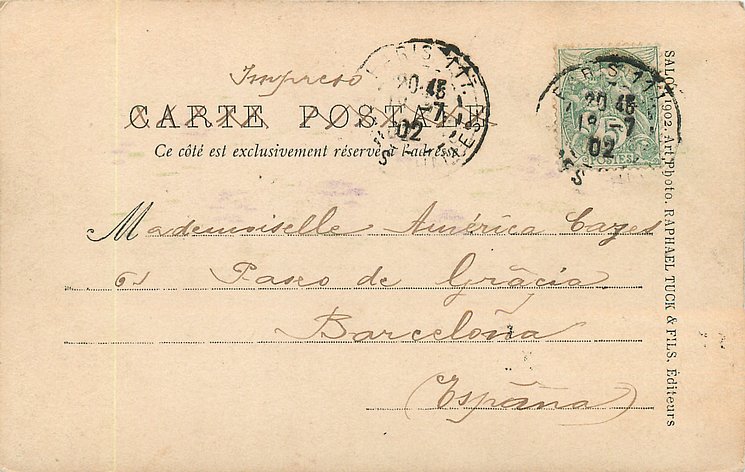 Impreso
CARTE POSTALE
Ce côté est exclusivement réservé à l'adresse
Mademoiselle América Cazes
61 Paseo de Gràcia
Barceloña
(España)
PARIS 117
20 45
18 -7
02
PARIS 11
20 45
18 -7
02
POSTES
SALON 1902. Art Photo. RAPHAEL TUCK & FILS, Éditeurs